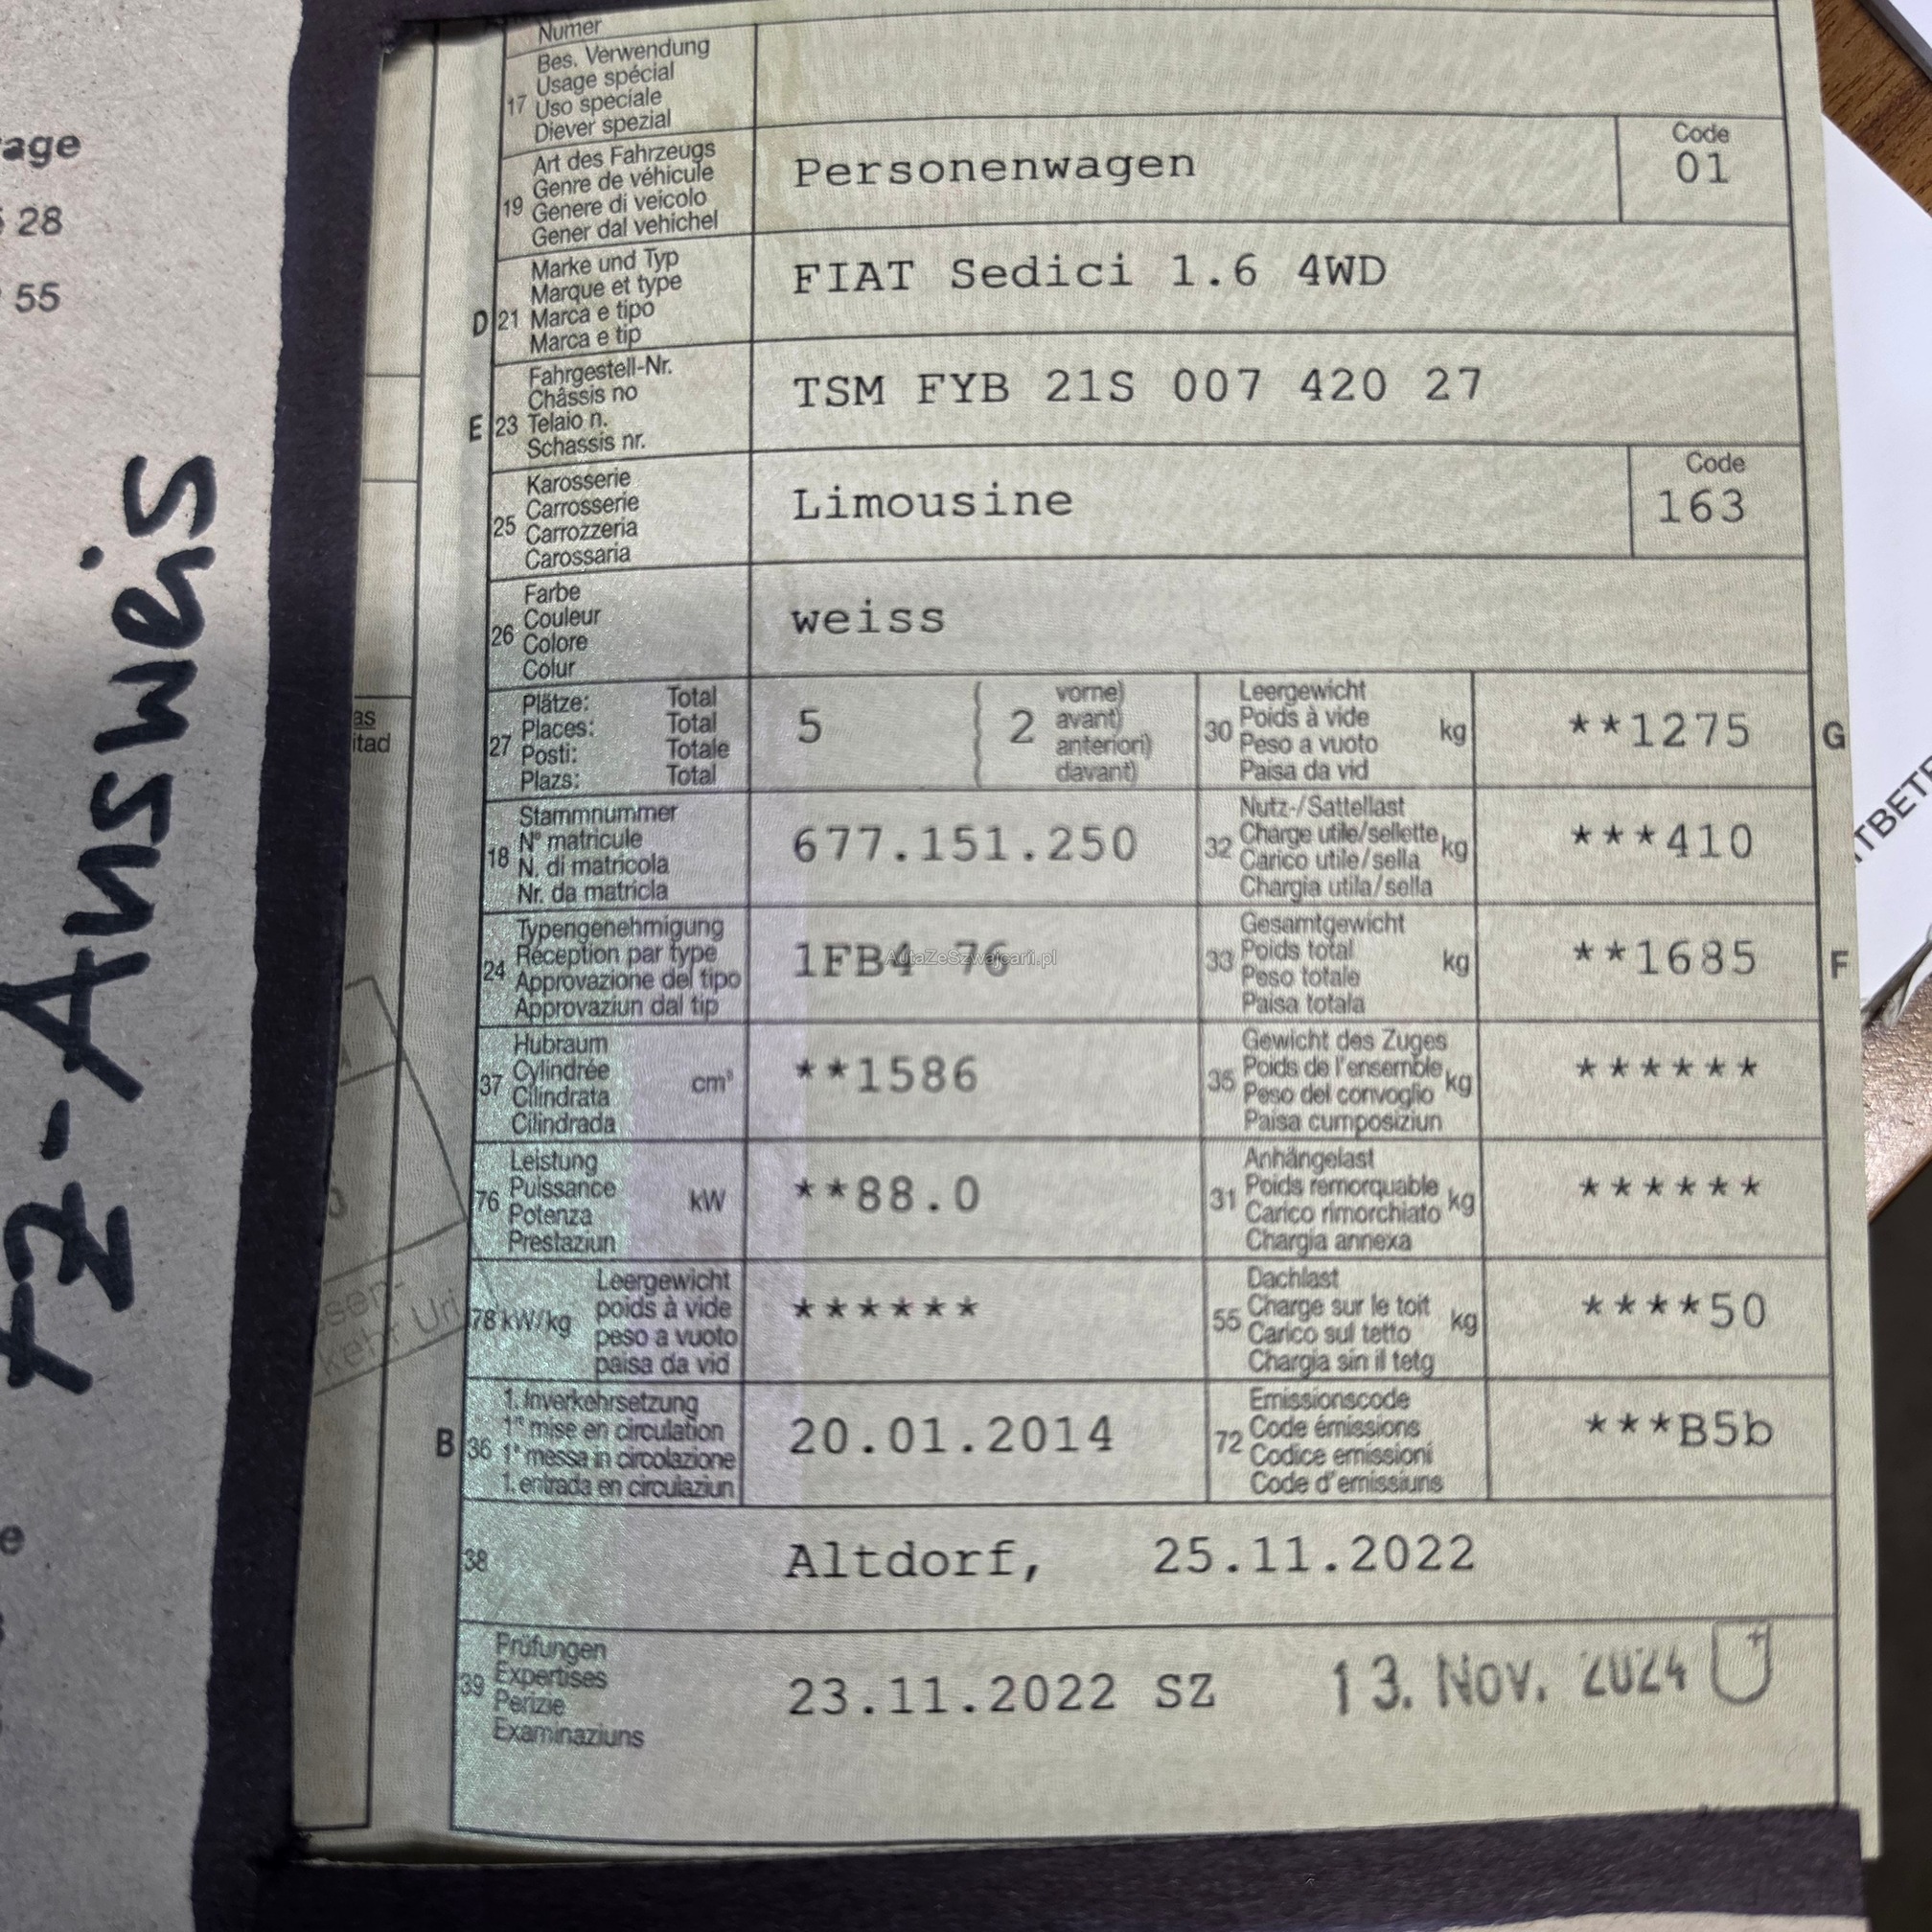 Numer
17 Bes. Verwendung
Usage spécial
Uso speciale
Diever spezial
19 Art des Fahrzeugs
Genre de véhicule
Genere di veicolo
Gener dal vehichel
Personenwagen
Code
01
D 21 Marke und Typ
Marque et type
Marca e tipo
Marca e tip
FIAT Sedici 1.6 4WD
E 23 Fahrgestell-Nr.
Châssis no
Telaio n.
Schassis nr.
TSM FYB 21S 007 420 27
25 Karosserie
Carrosserie
Carrozzeria
Carossaria
Limousine
Code
163
26 Farbe
Couleur
Colore
Colur
weiss
27 Plätze: Total
Places: Total
Posti: Totale
Plazs: Total
5 ( 2 vorne)
avant)
anteriori)
davant)
30 Leergewicht
Poids à vide kg
Peso a vuoto
Paisa da vid
**1275
G
18 Stammnummer
N° matricule
N. di matricola
Nr. da matricla
677.151.250
32 Nutz-/Sattellast
Charge utile/sellette kg
Carico utile/sella
Chargia utila/sella
***410
24 Typengenehmigung
Réception par type
Approvazione del tipo
Approvaziun dal tip
1FB4 76
AutaZeSzwajcarii.pl
33 Gesamtgewicht
Poids total kg
Peso totale
Paisa totala
**1685
F
37 Hubraum
Cylindrée cm³
Cilindrata
Cilindrada
**1586
35 Gewicht des Zuges
Poids de l'ensemble kg
Peso del convoglio
Paisa cumposiziun
******
76 Leistung
Puissance kW
Potenza
Prestaziun
**88.0
31 Anhängelast
Poids remorquable kg
Carico rimorchiato
Chargia annexa
******
78 kW/kg Leergewicht
poids à vide
peso a vuoto
paisa da vid
******
55 Dachlast
Charge sur le toit kg
Carico sul tetto
Chargia sin il tetg
****50
B 36 1. Inverkehrsetzung
1re mise en circulation
1a messa in circolazione
1. entrada en circulaziun
20.01.2014
72 Emissionscode
Code émissions
Codice emissioni
Code d'emissiuns
***B5b
38 Altdorf, 25.11.2022
39 Prüfungen
Expertises
Perizie
Examinaziuns
23.11.2022 SZ
13. Nov. 2024
FZ-Ausweis
age
28
55
as
itad
sen-
kehr Uri
TBETR